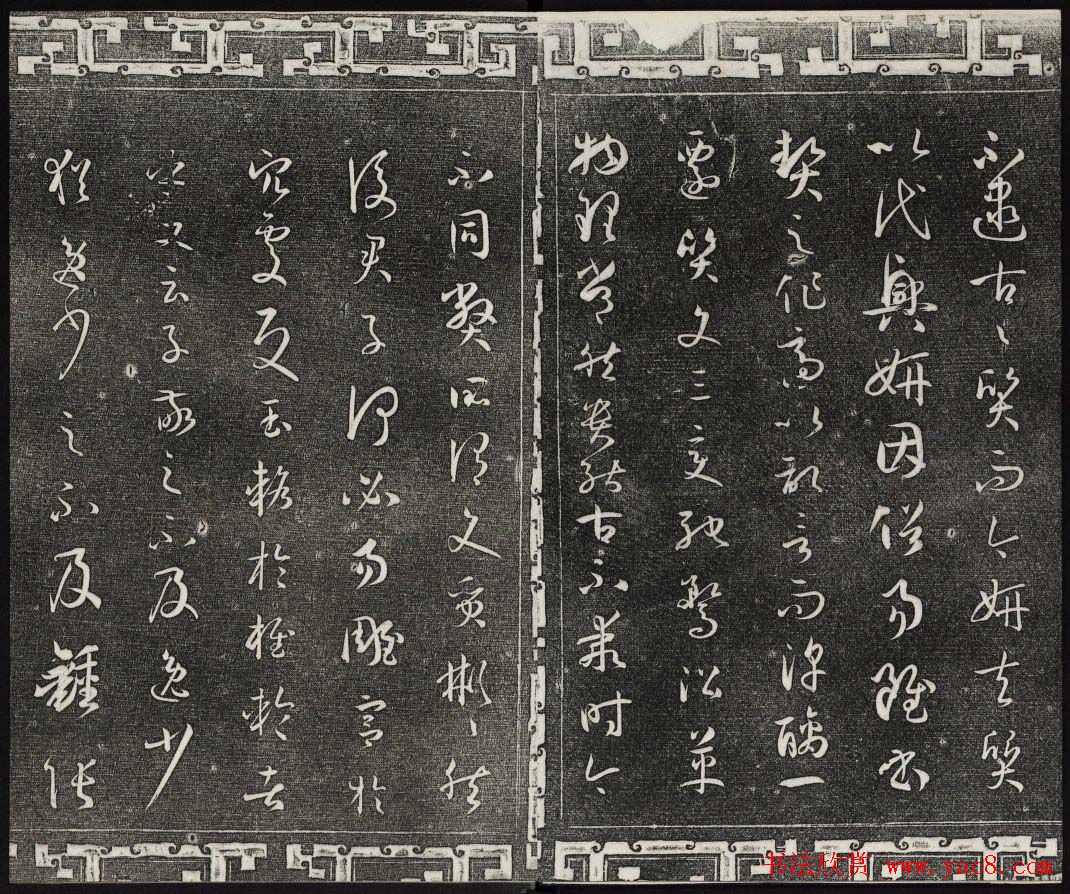 不逮古々質而今妍夫質
以代興妍因俗易雖書
契之作適以記言而淳醨一
遷質文三變馳鶩沿革
物理常然貴能古不乖時今
不同弊所謂文質彬々然
後君子何必易雕宮於
穴處反玉輅於椎輪者
乎又云子敬之不及逸少
猶逸少之不及鍾張
书法欣赏 www.yac8.com